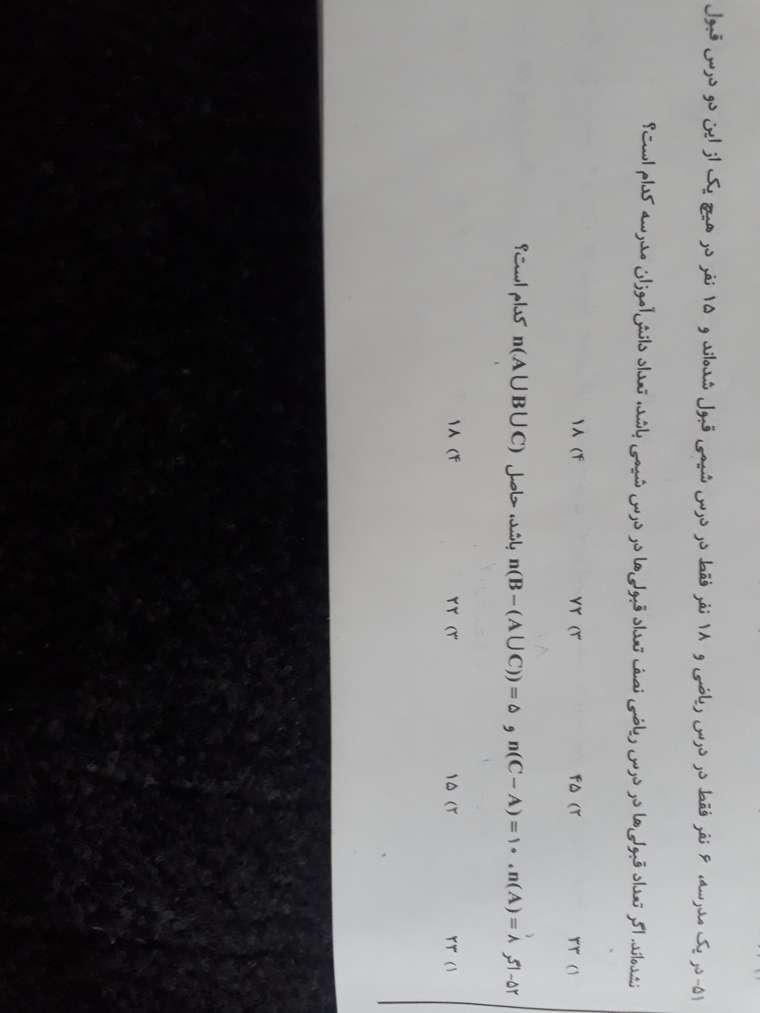 ۵۱- در یک مدرسه، ۶ نفر فقط در درس ریاضی و ۱۸ نفر فقط در درس شیمی قبول شده‌اند و ۱۵ نفر در هیچ یک از این دو درس قبول
نشده‌اند. اگر تعداد قبولی‌ها در درس ریاضی نصف تعداد قبولی‌ها در درس شیمی باشد، تعداد دانش‌آموزان مدرسه کدام است؟
۱) ۳۳ ۲) ۴۵ ۳) ۷۲ ۴) ۱۸
۵۲- اگر n(A) = ۸، n(C − A) = ۱۰ و n(B − (A ∪ C)) = ۵ باشد، حاصل n(A ∪ B ∪ C) کدام است؟
۱) ۲۳ ۲) ۱۵ ۳) ۲۲ ۴) ۱۸